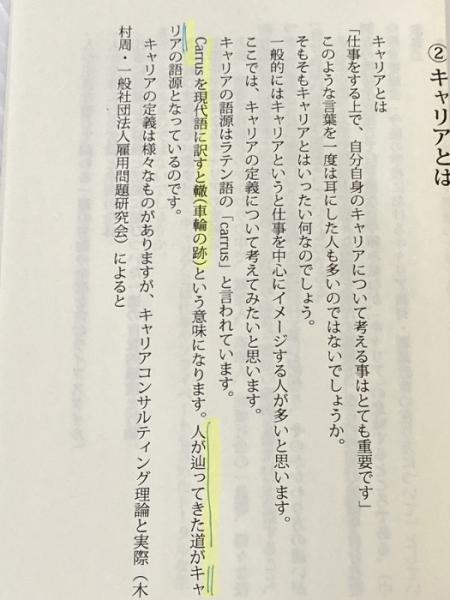 ②キャリアとは
キャリアとは
「仕事をする上で、自分自身のキャリアについて考える事はとても重要です」
このような言葉を一度は耳にした人も多いのではないでしょうか。
そもそもキャリアとはいったい何なのでしょう。
一般的にはキャリアというと仕事を中心にイメージする人が多いと思います。
ここでは、キャリアの定義について考えてみたいと思います。
キャリアの語源はラテン語の「carrus」と言われています。
Carrusを現代語に訳すと轍(車輪の跡)という意味になります。人が辿ってきた道がキャ
リアの語源となっているのです。
キャリアの定義は様々なものがありますが、キャリアコンサルティング理論と実際（木
村周・一般社団法人雇用問題研究会）によると